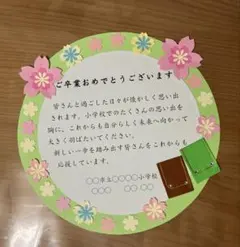 ご卒業おめでとうございます
皆さんと過ごした日々が懐かしく思い出
されます。小学校でのたくさんの思い出を
胸に、これからも自分らしく未来へ向かって
大きく羽ばたいてください。
新しい一歩を踏み出す皆さんをこれからも
応援しています。
○○市立○○○○小学校
○○○ ○○ ○○